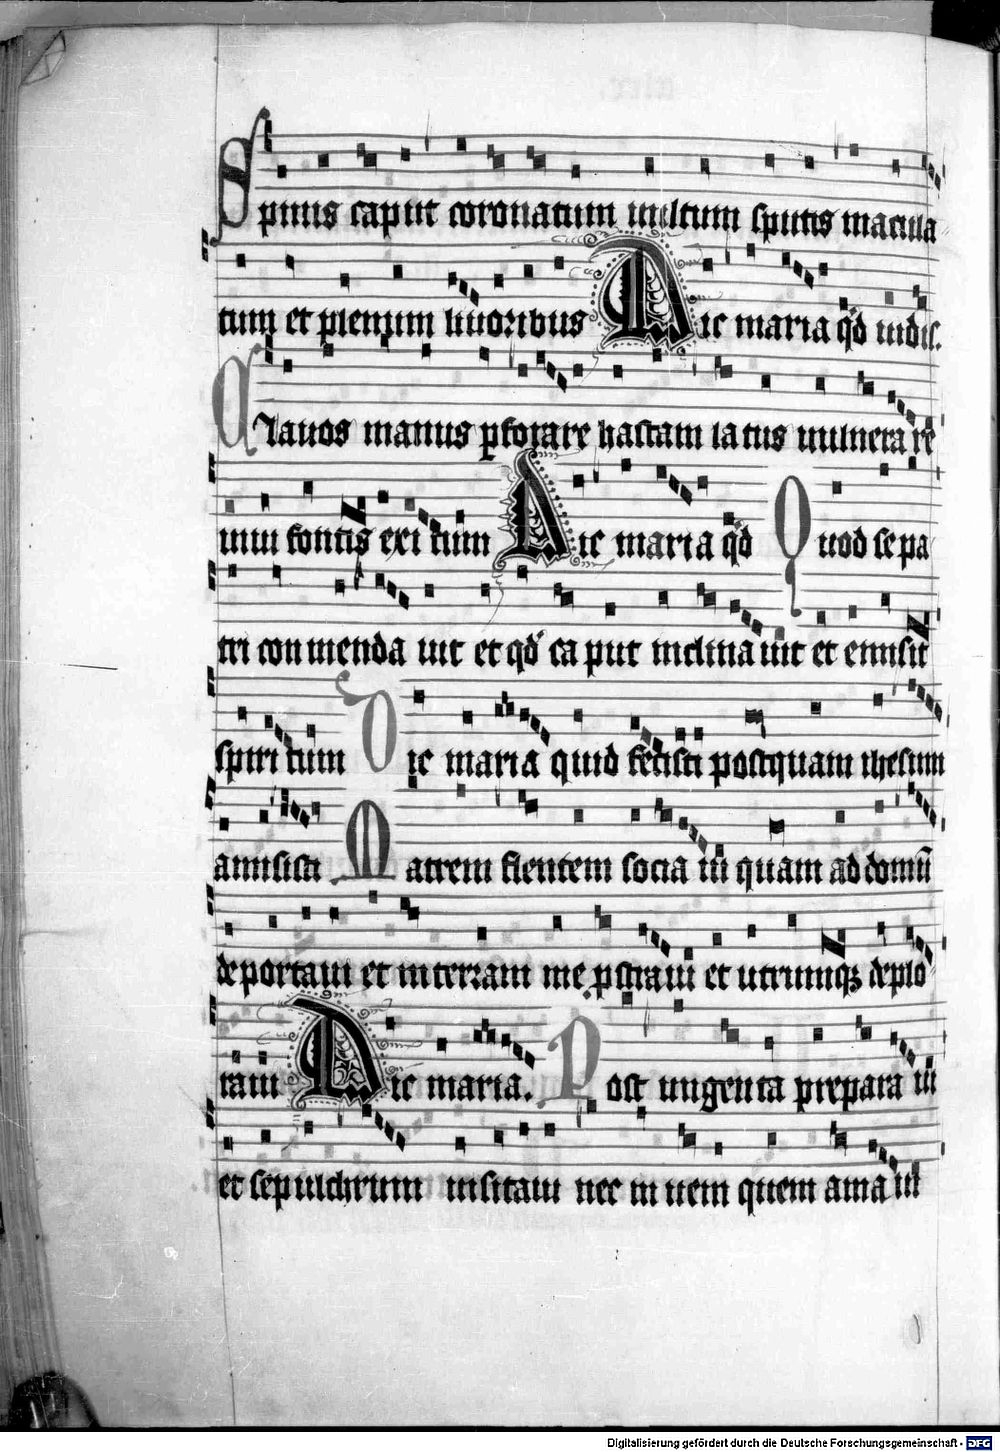 Spinis caput coronatum uultum sputis macula
tum et plenum liuoribus Dic maria q̄d uidis.
Clauos manus ꝑforare hastam latus uulnera re
uiui fontis exi tum Dic maria q̄d Quod se pa
tri con menda uit et q̄d ca put inclina uit et emisit
spiri tum Dic maria quid fecisti postquam ihesum
amisisti Matrem flentem socia ui quam ad domū
deportaui et in terram me ꝓstraui et utrumqꝫ deplo
raui Dic maria. Post ungenta prepara ui
et sepulchrum uisitaui nec in ueni quem ama ui
Digitalisierung gefördert durch die Deutsche Forschungsgemeinschaft - DFG